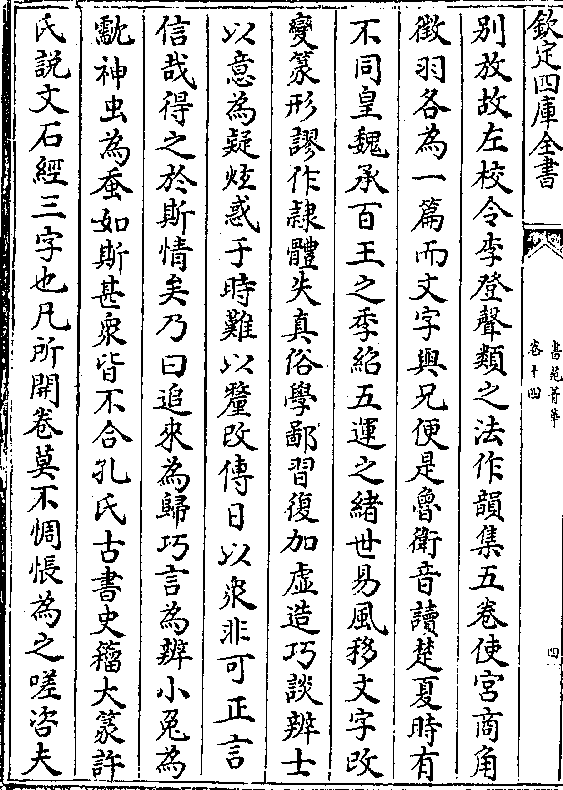 欽定四庫全書
書苑菁華
卷十四
四
別放故左校令李登聲類之法作韻集五卷使宮商角
徵羽各為一篇而文字與兄便是魯衛音讀楚夏時有
不同皇魏承百王之季紹五運之緒世易風移文字改
變篆形謬作隷體失真俗學鄙習復加虛造巧談辨士
以意為疑炫惑于時難以釐改傳曰以衆非可正言
信哉得之於斯情矣乃曰追來為歸巧言為辨小兔為
䨲神虫為蚕如斯甚衆皆不合孔氏古書史籀大篆許
氏說文石經三字也凡所開卷莫不惆悵為之嗟咨夫